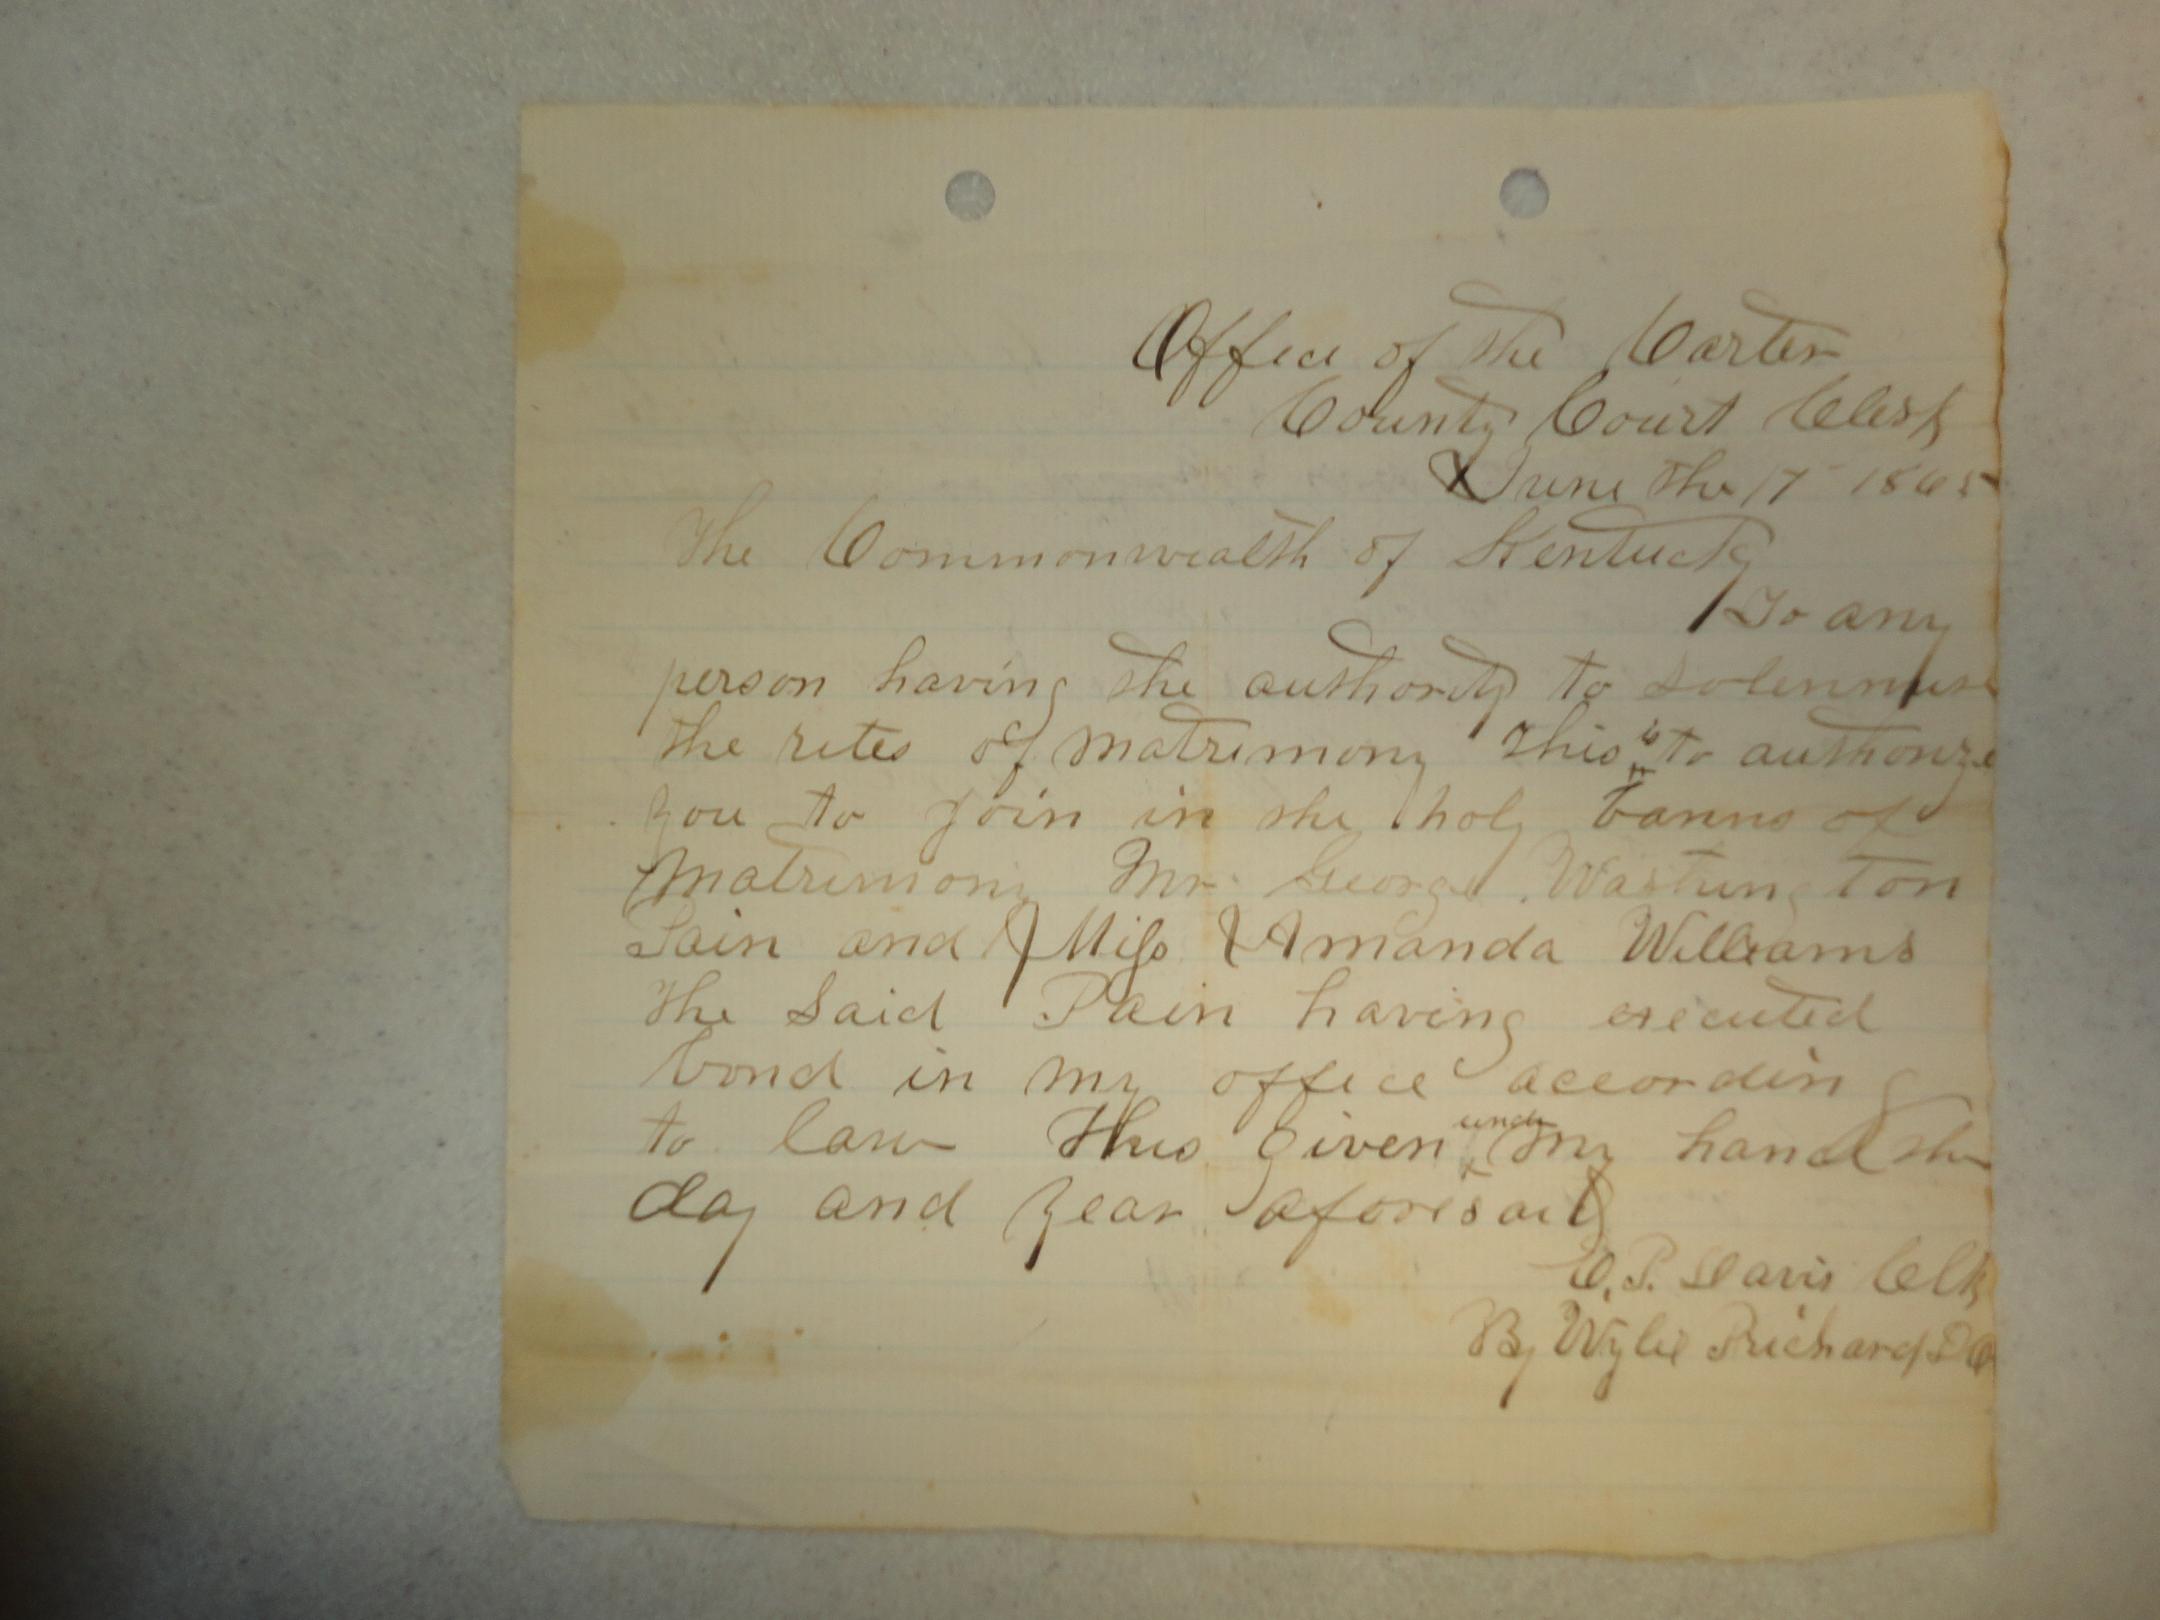 Office of the Carter
County Court Clerk
June the 17 1865
The Commonwealth of Kentucky
To any
person having the authority to Solemnise
the rites of matrimony This is to authorize
you to join in the holy banns of
Matrimony Mr George Washington
Pain and Miss Amanda Williams
The Said Pain having executed
bond in my office according
to law This given under my hand the
day and year aforesaid
C. P. Davis Clk
By Wylie Prichard DC